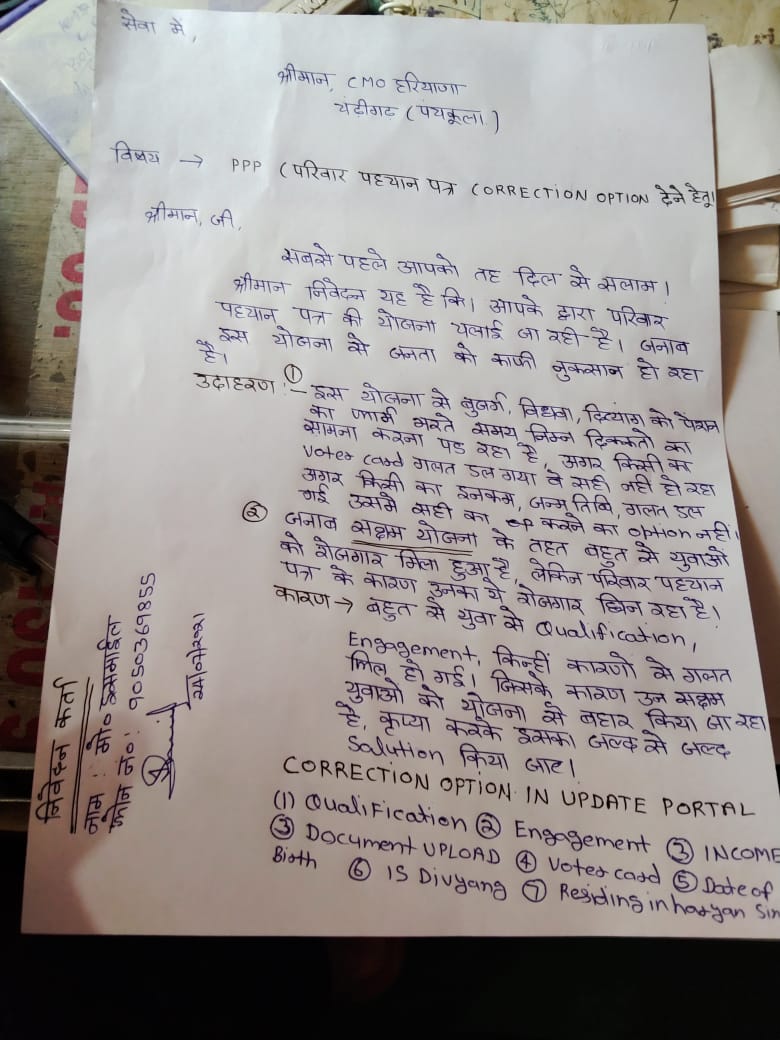 सेवा में,
श्रीमान, CMO हरियाणा
चंढीगढ़ (पंचकूला)
विषय → PPP (परिवार पहचान पत्र CORRECTION OPTION देने हेतू।
श्रीमान, जी,
सबसे पहले आपको तह दिल से सलाम।
श्रीमान निवेदन यह है कि। आपके द्वारा परिवार
पहचान पत्र की योजना चलाई जा रही है। जनाब
इस योजना से जनता को काफी नुकसान हो रहा
है।
उदाहरण :- ① इस योजना से बुजर्ग, विधवा, दिव्यांग को पेंशन
का फार्म भरते समय निम्न दिक्कतो का
सामना करना पड रहा है, अगर किसी का
Voter card गलत डल गया वे सही नही हो रहा
अगर किसी का इनकम, जन्म तिथि, गलत डल
गई उसमे सही का करने का option नहीं।
② जनाब सक्षम योजना के तहत बहुत से युवाओं
को रोजगार मिला हुआ है, लेकिन परिवार पहचान
पत्र के कारण उनका ये रोजगार छिन रहा है।
कारण → बहुत से युवा से Qualification,
Engagement, किन्हीं कारणो से गलत
मिल हो गई। जिसके कारण उन सक्षम
युवाओ को योजना से बहार किया जा रहा
है, कृप्या करके इसका जल्द से जल्द
Solution किया जाए।
CORRECTION OPTION IN UPDATE PORTAL
(1) Qualification ② Engagement ③ INCOME
③ Document UPLOAD ④ Voter card ⑤ Date of
Birth ⑥ IS Divyang ⑦ Residing in haryan Sin
निवेदन कर्ता
नाम : मो० इसमाईल
फोन न० : 9050369855